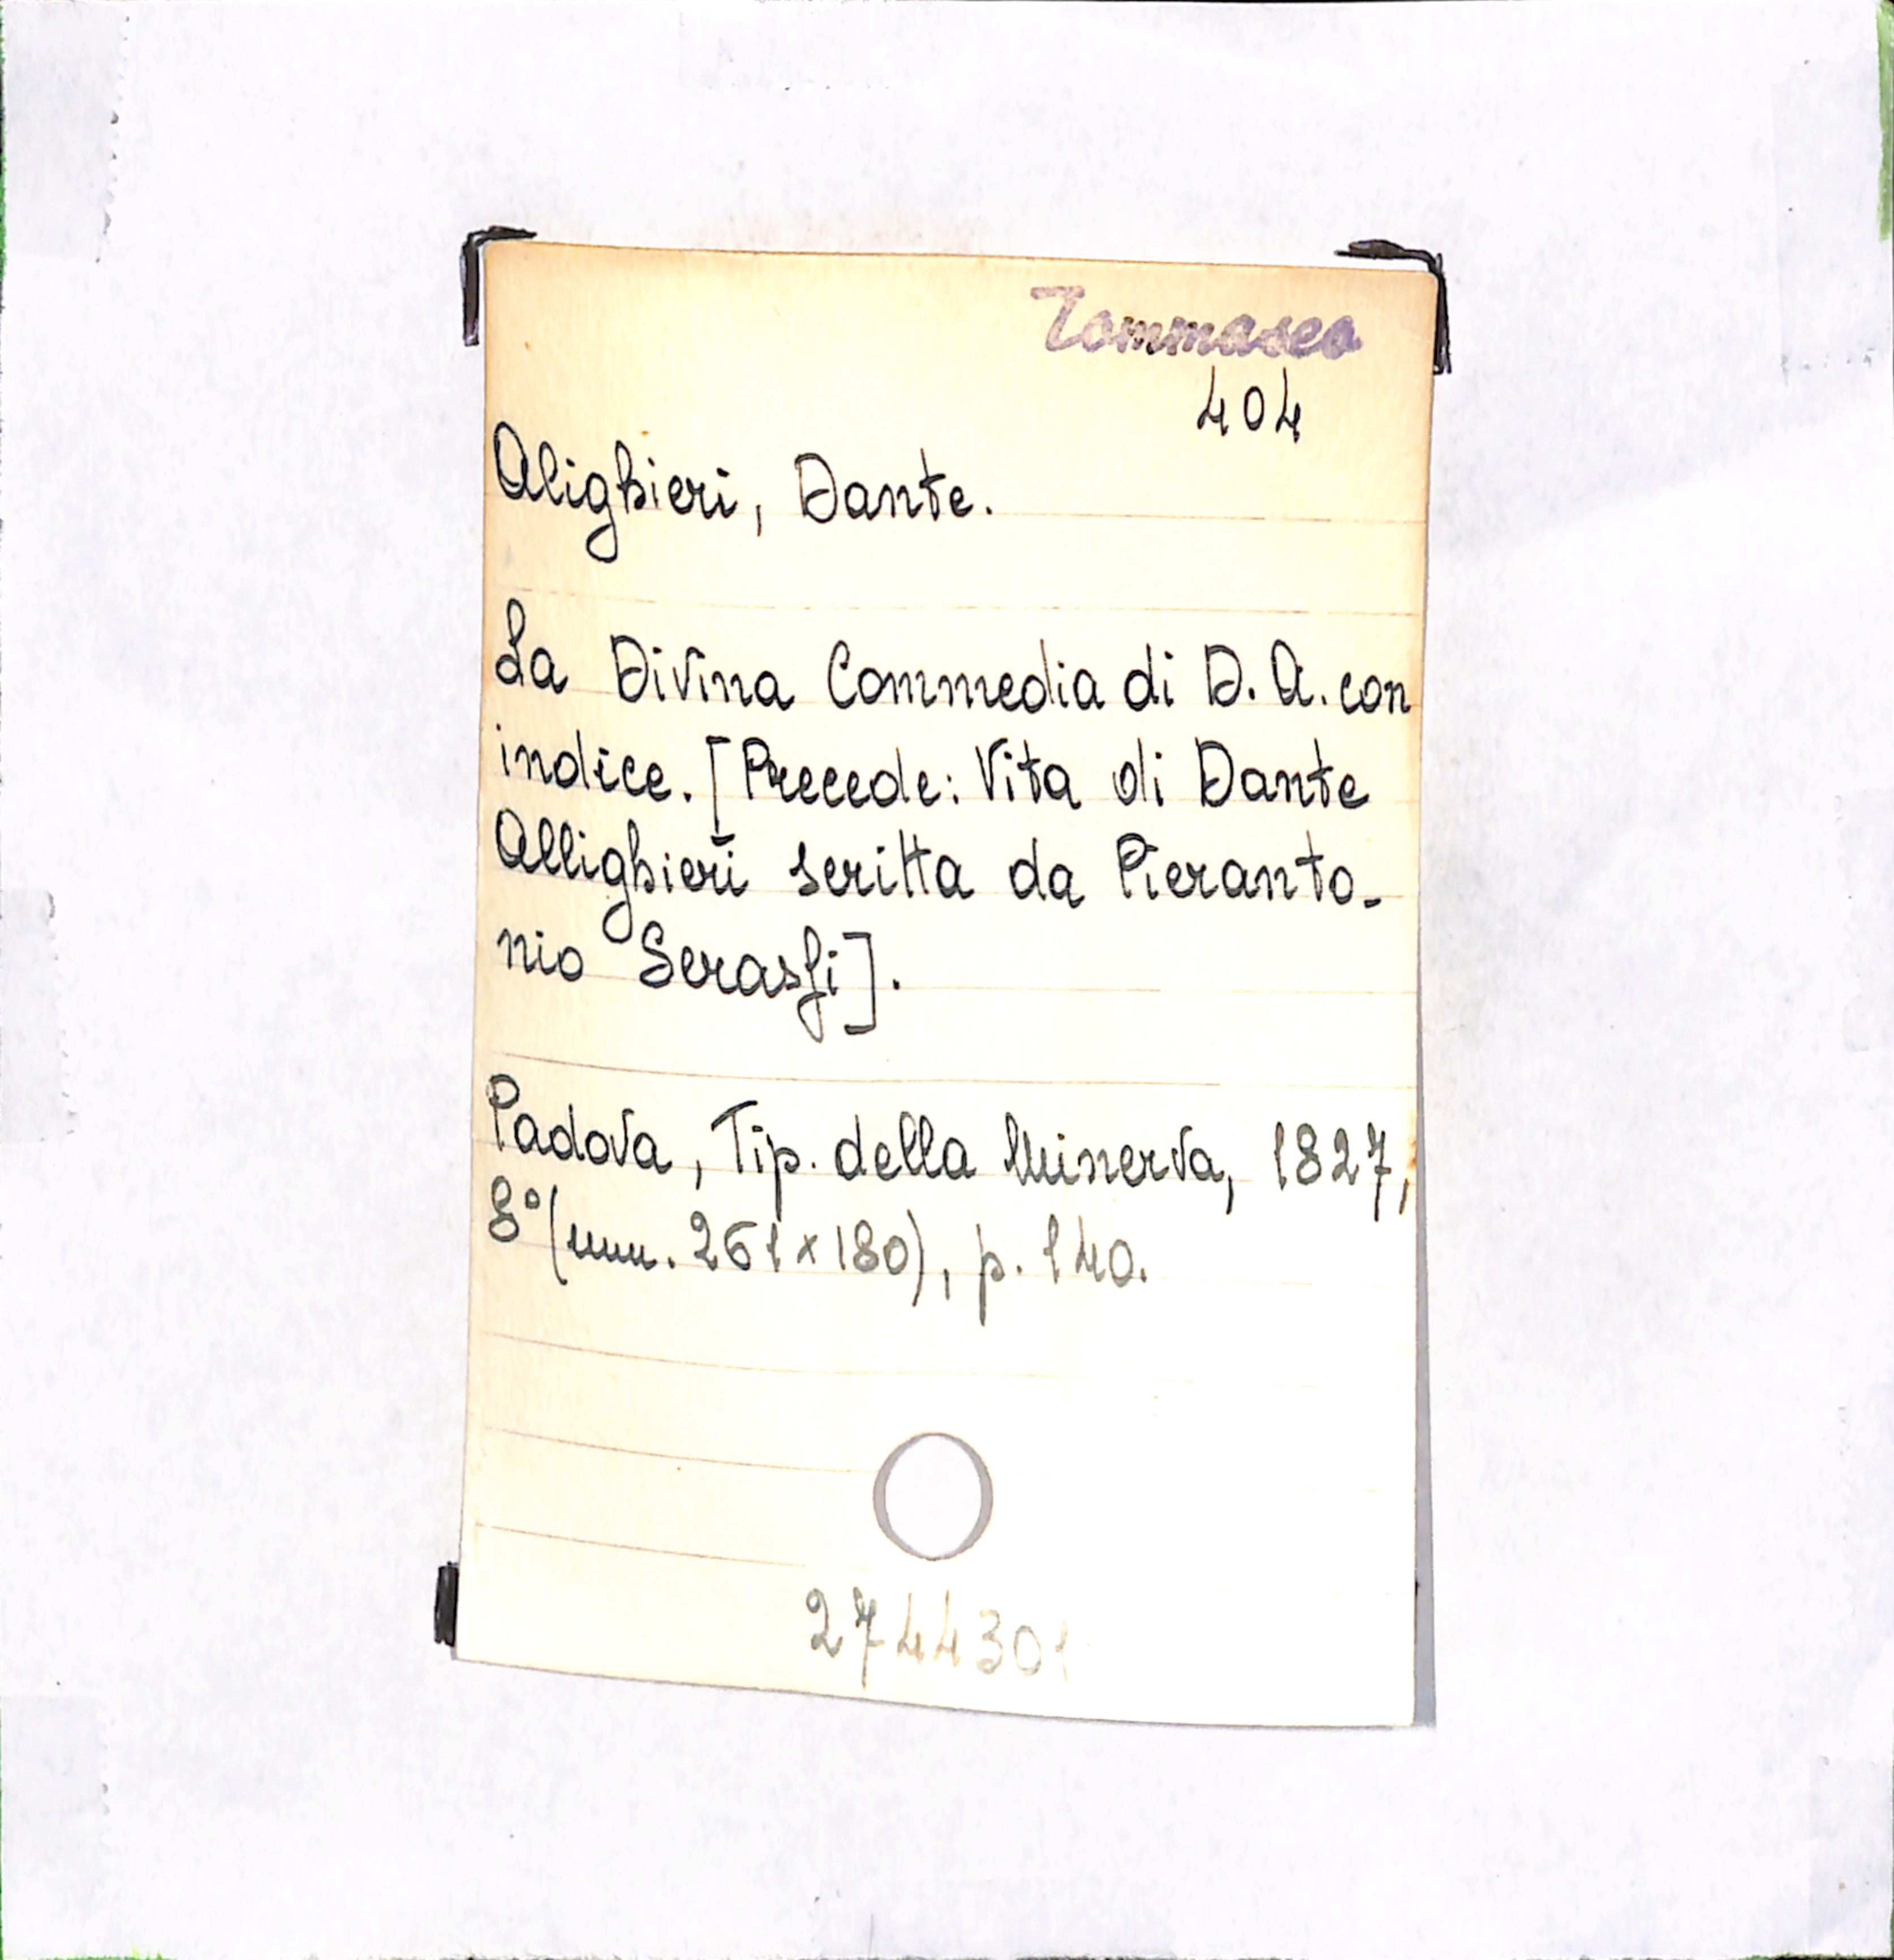 Tommaseo
404
Alighieri, Dante.
La Divina Commedia di D. A. con
indice. [Precede: Vita di Dante
Allighieri scritta da Pieranto-
nio Serassi].
Padova, Tip. della Minerva, 1827,
8° (mm. 261 x 180), p. 140.
2744301